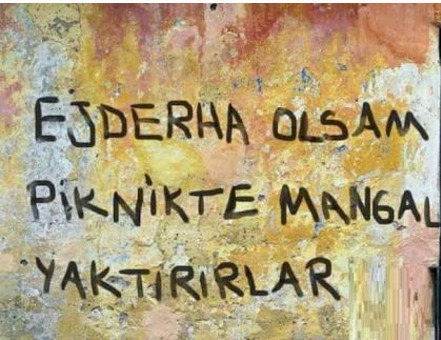 EJDERHA OLSAM
PİKNİKTE MANGAL
YAKTIRIRLAR